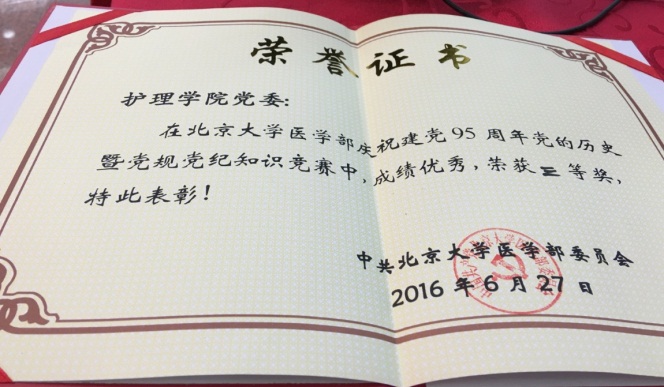 荣誉证书
护理学院党委:
在北京大学医学部庆祝建党95周年党的历史
暨党规党纪知识竞赛中,成绩优秀,荣获三等奖,
特此表彰!
中共北京大学医学部委员会
2016年6月27日